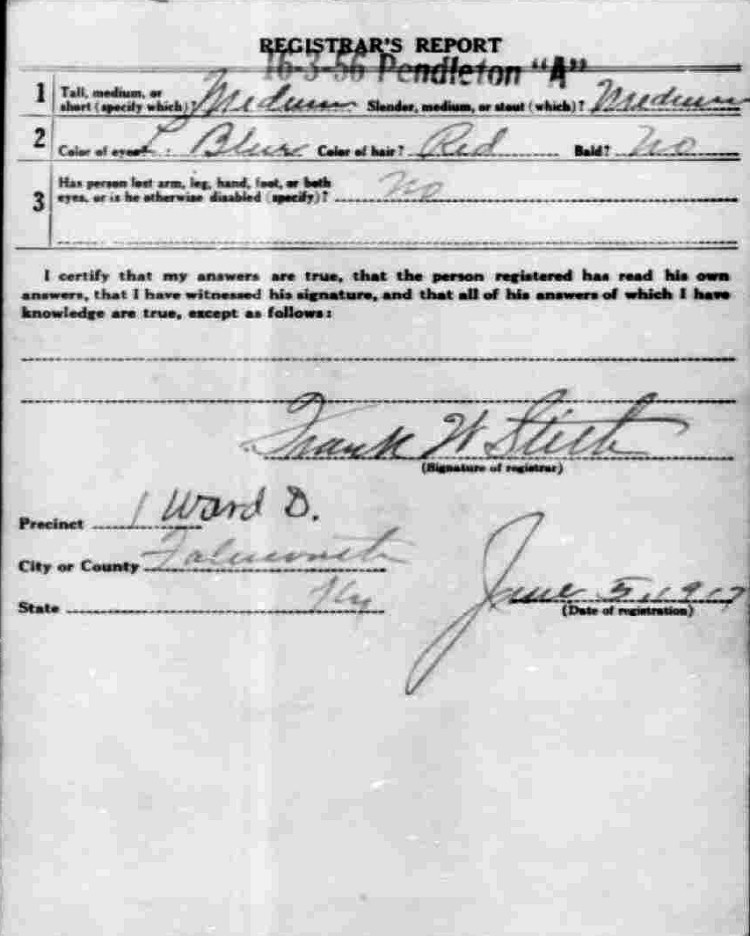 REGISTRAR'S REPORT
16-3-56 Pendleton "A"
1 Tall, medium, or short (specify which)? Medium Slender, medium, or stout (which)? Medium
2 Color of eyes? L. Blue Color of hair? Red Bald? No
3 Has person lost arm, leg, hand, foot, or both
eyes, or is he otherwise disabled (specify)? No
I certify that my answers are true, that the person registered has read his own
answers, that I have witnessed his signature, and that all of his answers of which I have
knowledge are true, except as follows:
Frank W
(Signature of registrar)
Precinct 1 Ward D.
City or County Falmouth
State Ky June 5, 1917
(Date of registration)